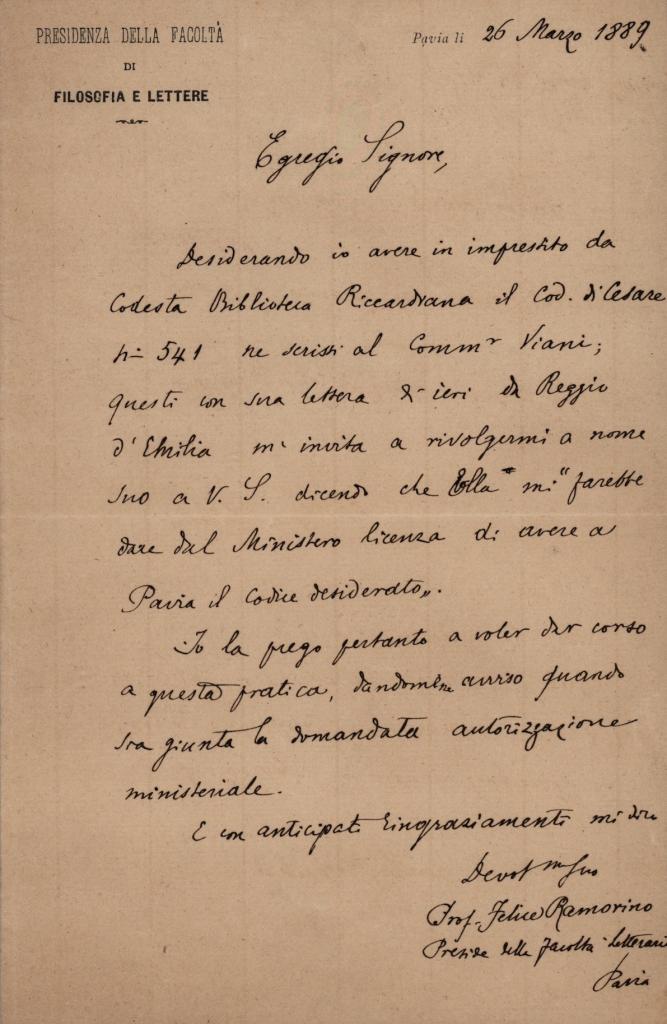 PRESIDENZA DELLA FACOLTÀ
DI
FILOSOFIA E LETTERE
Pavia li 26 Marzo 1889
Egregio Signore,
Desiderando io avere in imprestito da
Codesta Biblioteca Riccardiana il Cod. di Cesare
nº 541 ne scrissi al Commʳ Viani;
questi con sua lettera di ieri da Reggio
d'Emilia m'invita a rivolgermi a nome
suo a V. S. dicendo che Ella "mi farebbe
dare dal Ministero licenza di avere a
Pavia il codice desiderato".
Io la prego pertanto a voler dar corso
a questa pratica, dandomene avviso quando
sia giunta la domandata autorizzazione
ministeriale.
E con anticipati ringraziamenti mi dico
Devotᵐᵒ Suo
Prof. Felice Ramorino
Preside della Facoltà Letteraria
Pavia